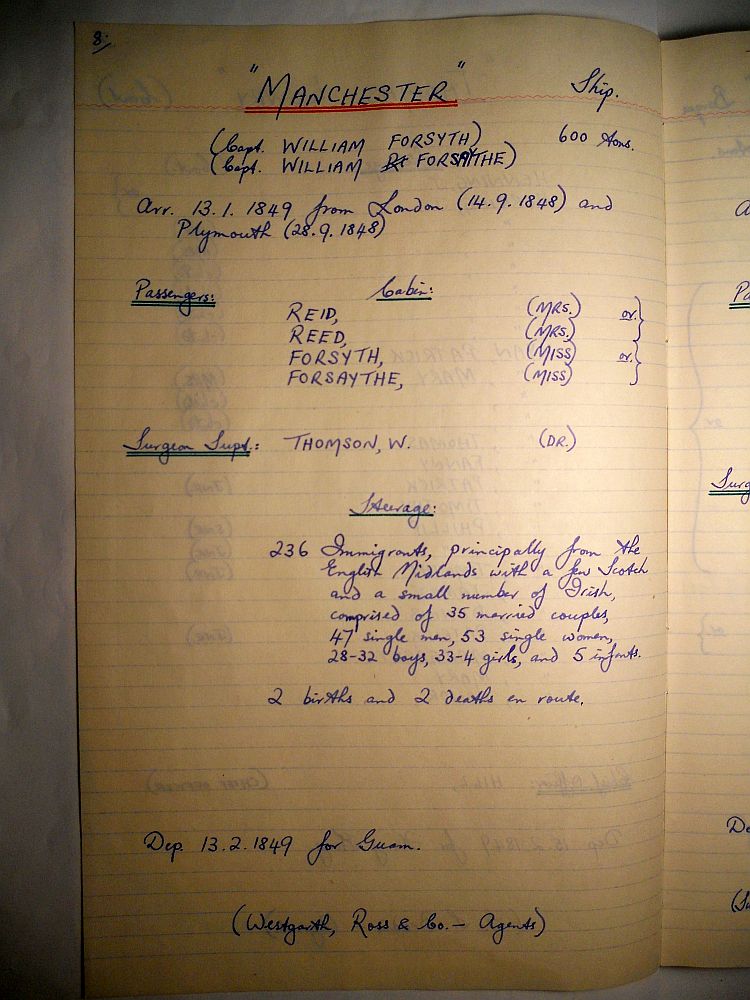 8.
"MANCHESTER" Ship.
(Capt. WILLIAM FORSYTH) 600 tons.
(Capt. WILLIAM FORSAYTHE)
Arr. 13.1.1849 from London (14.9.1848) and
Plymouth (28.9.1848)
Passengers: Cabin:
REID, (MRS.) or.
REED, (MRS.)
FORSYTH, (MISS) or.
FORSAYTHE, (MISS)
Surgeon Supt.: THOMSON, W. (DR.)
Steerage:
236 Immigrants, principally from the
English Midlands with a few Scotch
and a small number of Irish,
comprised of 35 married couples,
47 single men, 53 single women,
28-32 boys, 33-4 girls, and 5 infants.
2 births and 2 deaths en route.
Dep. 13.2.1849 for Guam.
(Westgarth, Ross & Co. - Agents)